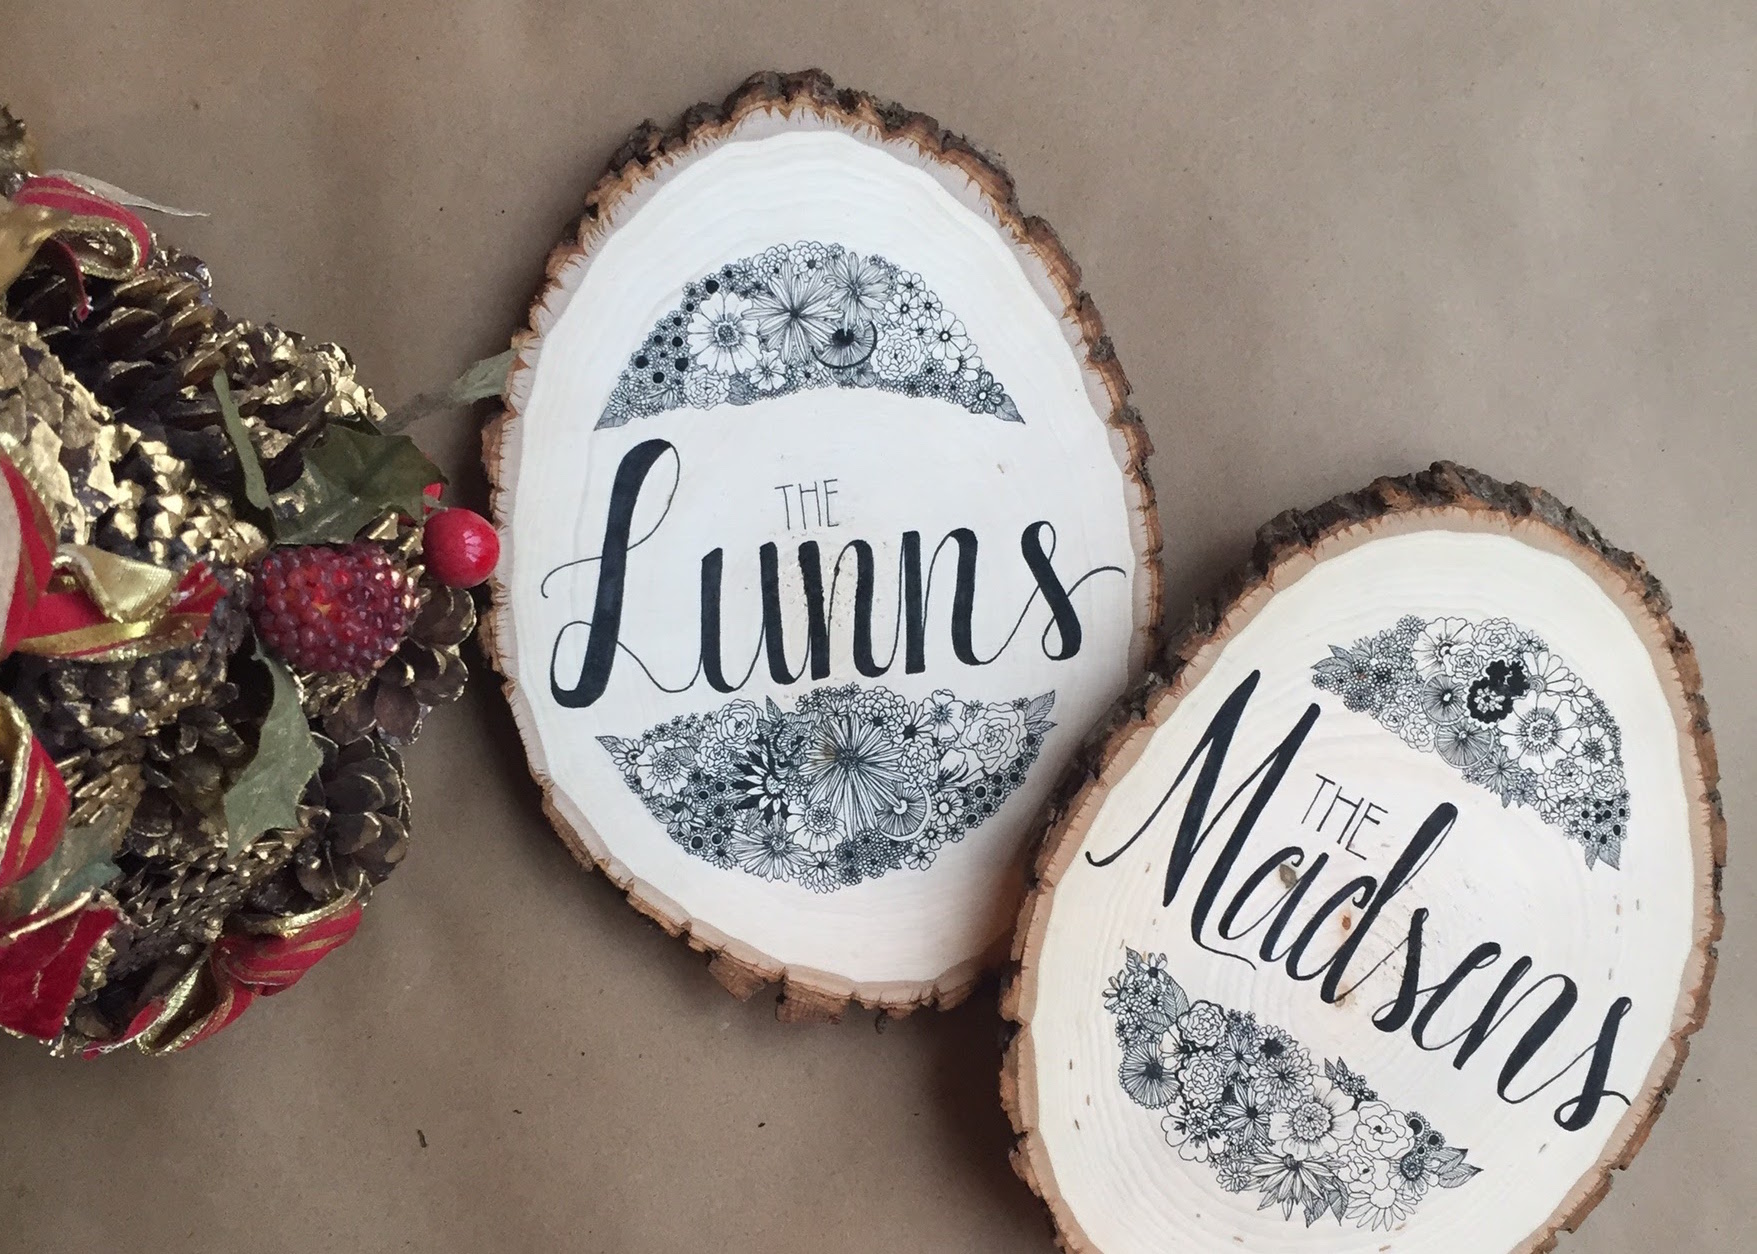 THE
Lunns
THE
Madsens